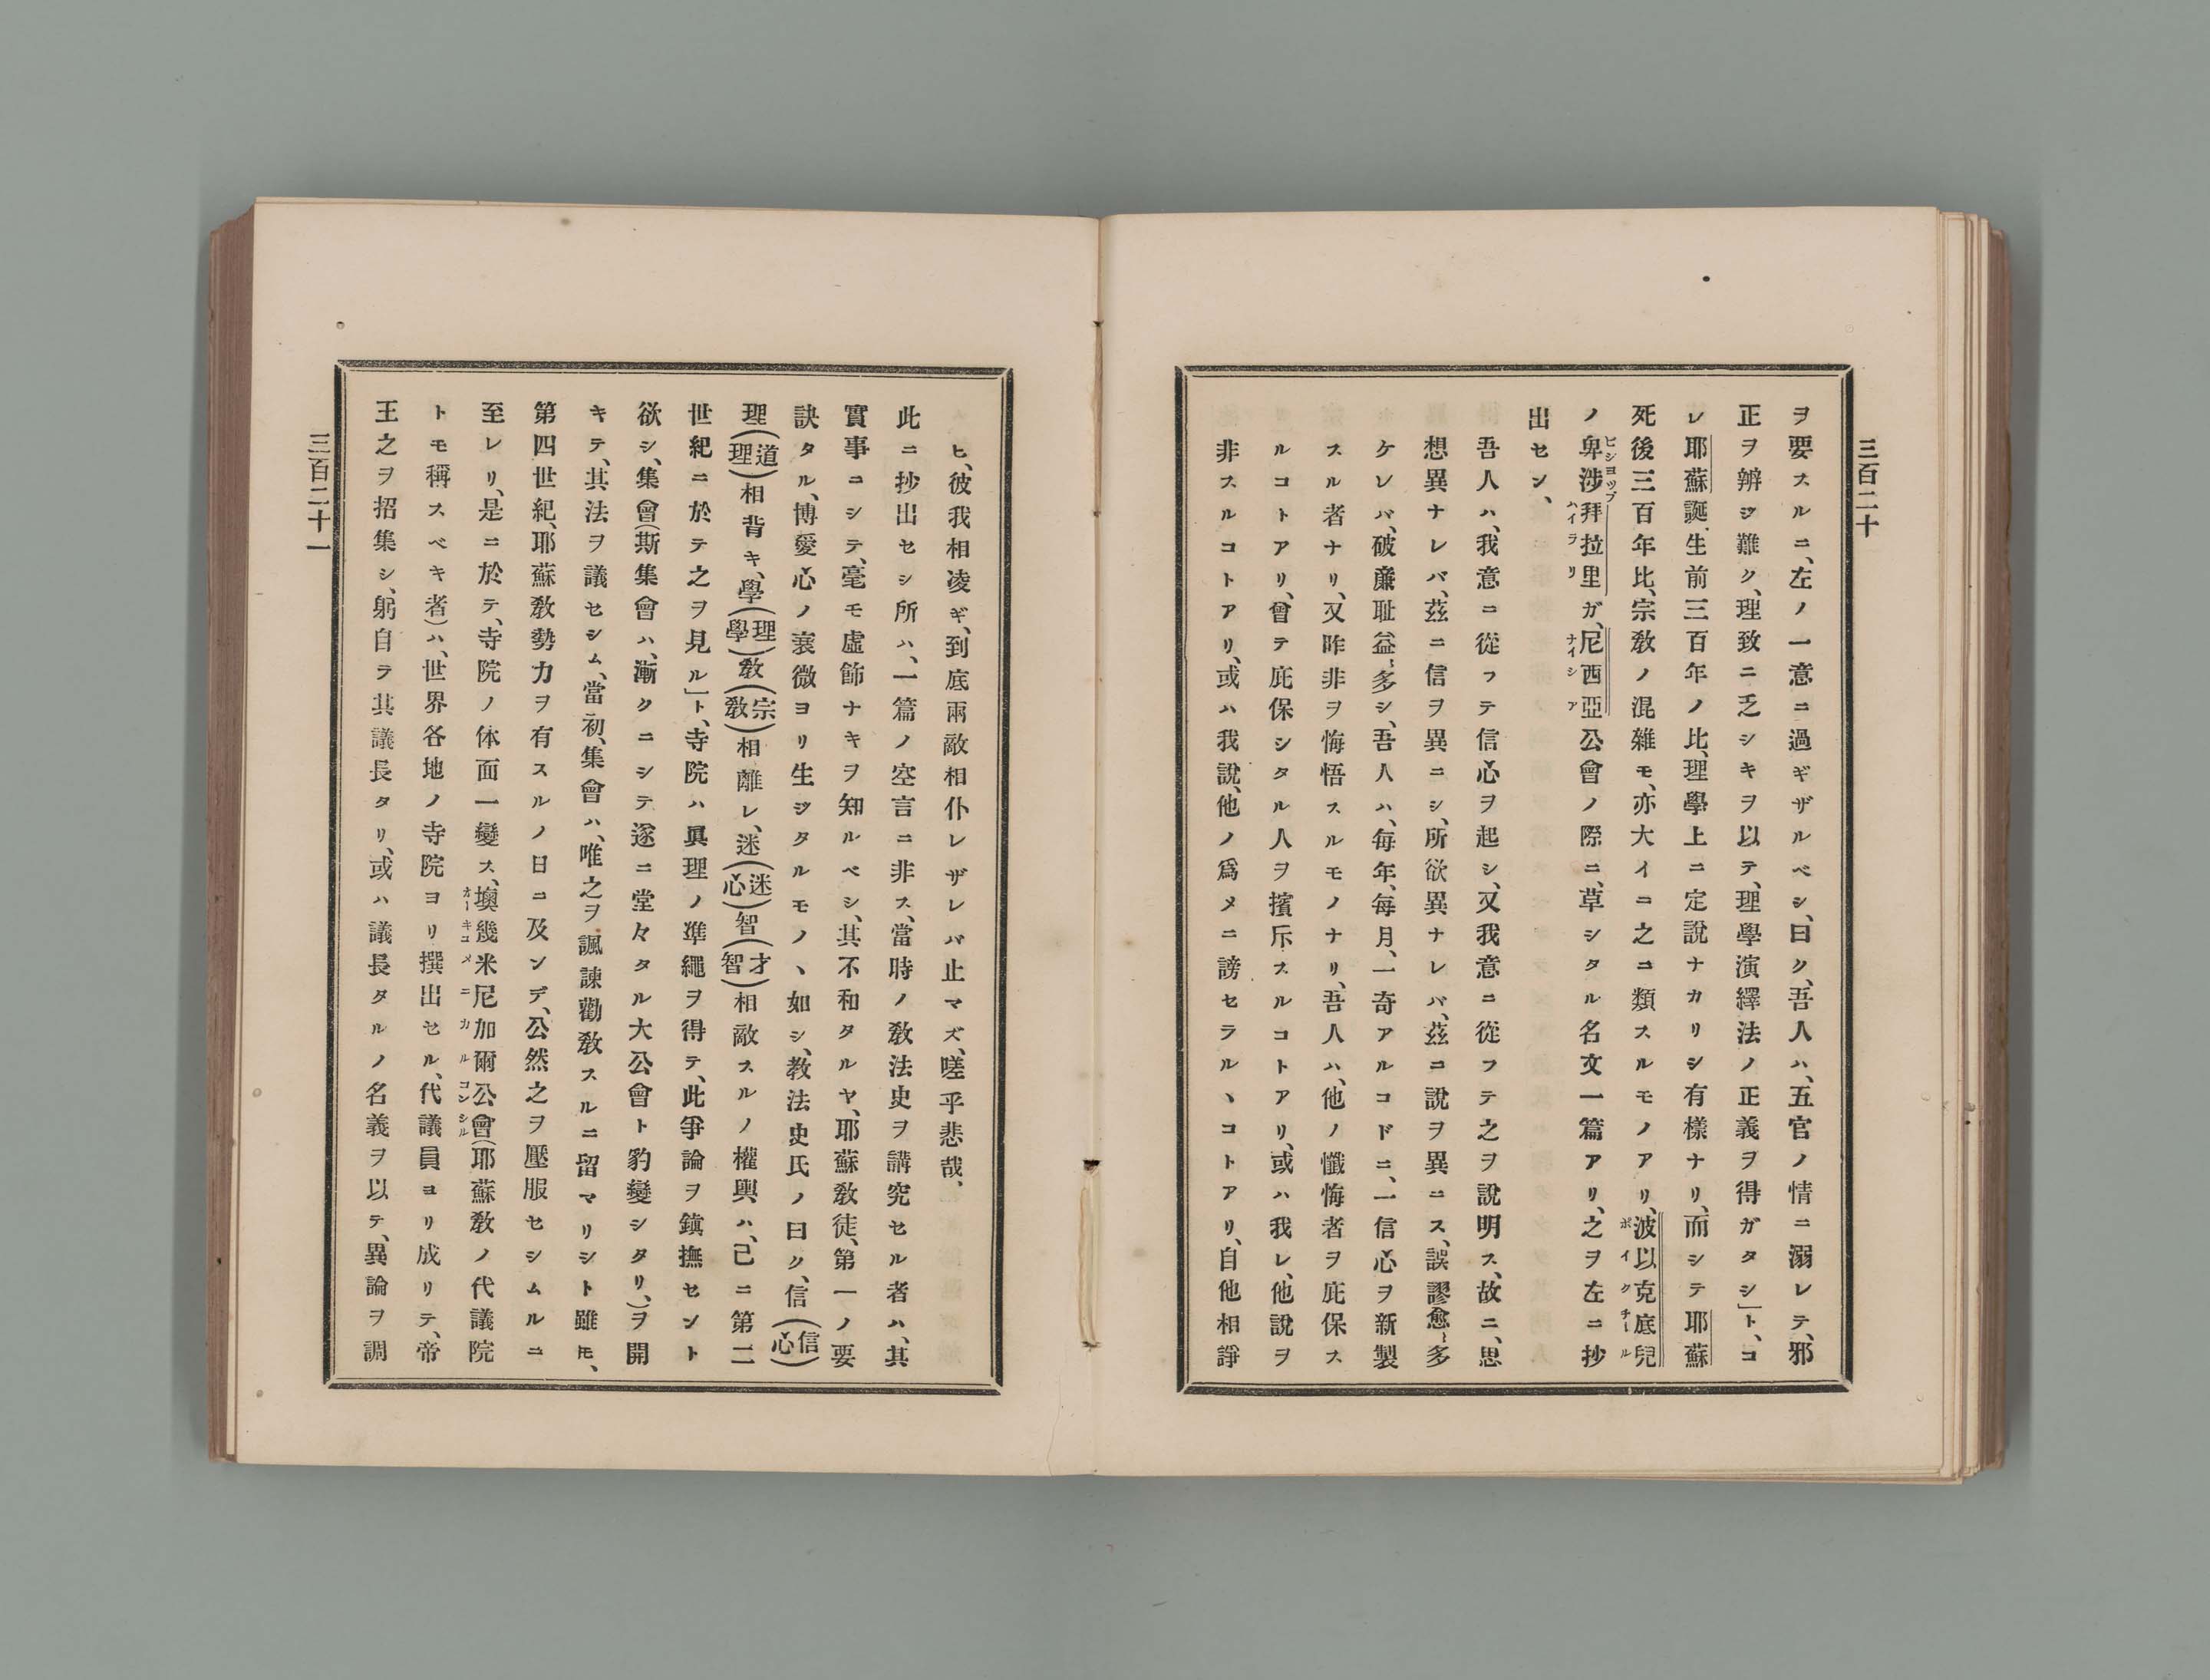 三百二十
ヲ要スルニ、左ノ一意ニ過ギザルベシ、曰ク、吾人ハ、五官ノ情ニ溺レテ、邪
正ヲ辨ジ難ク、理致ニ乏シキヲ以テ、理學演繹法ノ正義ヲ得ガタシ」ト、コ
レ耶蘇誕生前三百年ノ比、理學上ニ定說ナカリシ有樣ナリ、而シテ耶蘇
死後三百年比、宗敎ノ混雜モ、亦大イニ之ニ類スルモノアリ、波以克底兒
ボイクチール
ノ卑涉拜拉里ガ、尼西亞公會ノ際ニ、草シタル名文一篇アリ、之ヲ左ニ抄
ビシヨップハイラリ
ナイシア
出セン、
吾人ハ、我意ニ從フテ信心ヲ起シ、又我意ニ從フテ之ヲ說明ス、故ニ、思
想異ナレバ、茲ニ信ヲ異ニシ、所欲異ナレバ、茲ニ說ヲ異ニス、誤謬愈〻多
ケレバ、破廉耻益〻多シ、吾人ハ、每年、每月、一奇アルコドニ、一信心ヲ新製
スル者ナリ、又昨非ヲ悔悟スルモノナリ、吾人ハ、他ノ懺悔者ヲ庇保ス
ルコトアリ、曾テ庇保シタル人ヲ擯斥スルコトアリ、或ハ我レ、他說ヲ
非スルコトアリ、或ハ我說、他ノ爲メニ謗セラルヽコトアリ、自他相諍
ヒ、彼我相凌ギ、到底兩敵相仆レザレバ止マズ、嗟乎悲哉、
此ニ抄出セシ所ハ、一篇ノ空言ニ非ス、當時ノ敎法史ヲ講究セル者ハ、其
實事ニシテ、毫モ虛飾ナキヲ知ルベシ、其不和タルヤ、耶蘇敎徒、第一ノ要
訣タル、博愛心ノ衰微ヨリ生ジタルモノヽ如シ、敎法史氏ノ曰ク、信(信心)
理(道理)相背キ、學(理學)敎(宗敎)相離レ、迷(迷心)智(才智)相敵スルノ權輿ハ、己ニ第二
世紀ニ於テ之ヲ見ル」ト、寺院ハ眞理ノ準繩ヲ得テ、此爭論ヲ鎭撫セント
欲シ、集會(斯集會ハ、漸クニシテ遂ニ堂々タル大公會ト豹變シタリ、)ヲ開
キテ、其法ヲ議セシム、當初、集會ハ、唯之ヲ諷諫勸敎スルニ留マリシト雖𪜈、
第四世紀、耶蘇敎勢力ヲ有スルノ日ニ及ンデ、公然之ヲ壓服セシムルニ
至レリ、是ニ於テ、寺院ノ体面一變ス、墺幾米尼加爾公會(耶蘇敎ノ代議院
オーキユメニカルコンシル
トモ稱スベキ者)ハ、世界各地ノ寺院ヨリ撰出セル、代議員ヨリ成リテ、帝
王之ヲ招集シ、躬自ラ其議長タリ、或ハ議長タルノ名義ヲ以テ、異論ヲ調
三百二十一